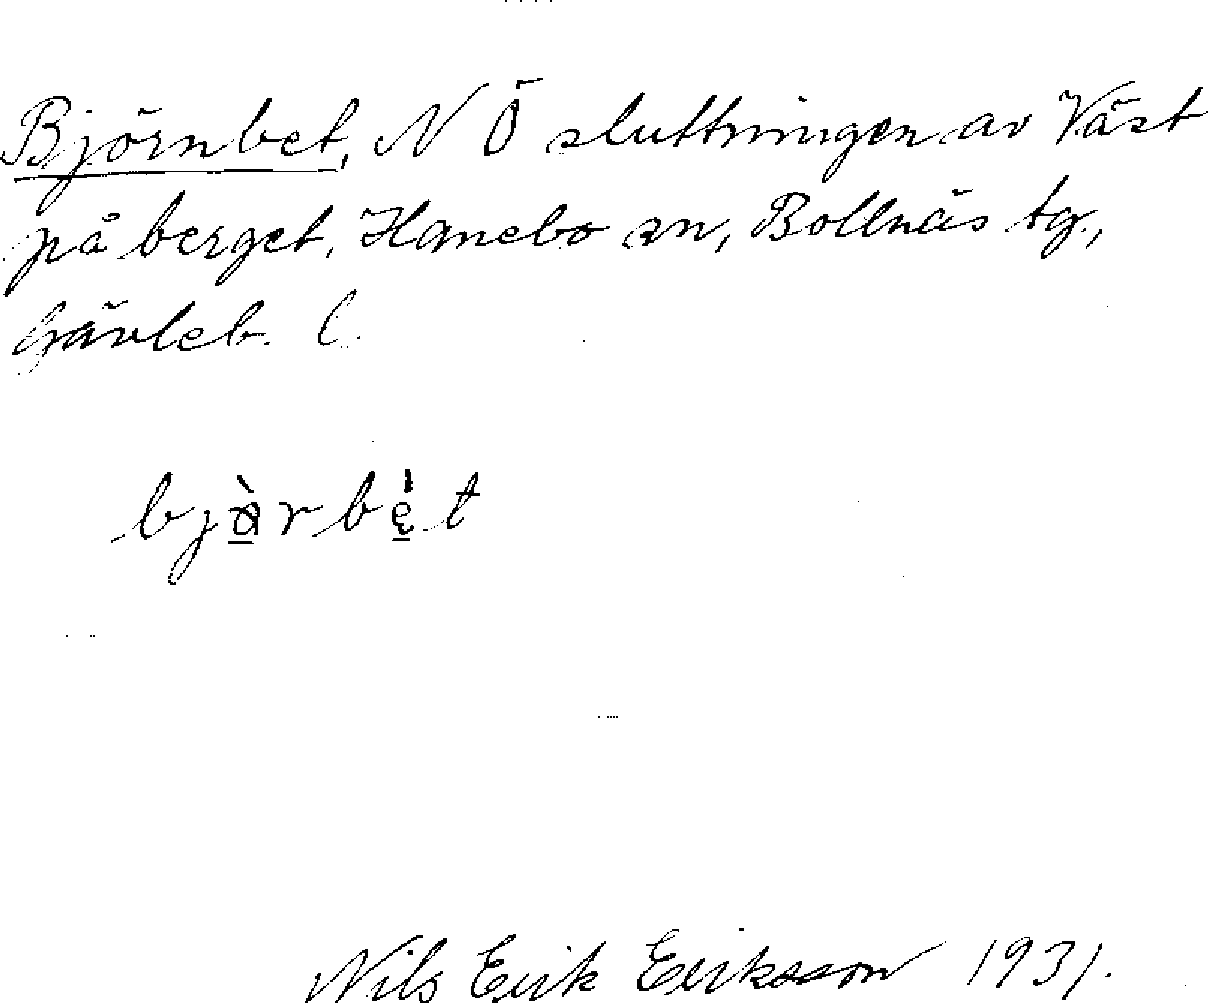 Björnbet, N Ö sluttningen av Väst
på berget, Hanebo sn, Bollnäs tg.,
Gävleb. l.
bjòrbèt
Nils Erik Eriksson 1931.